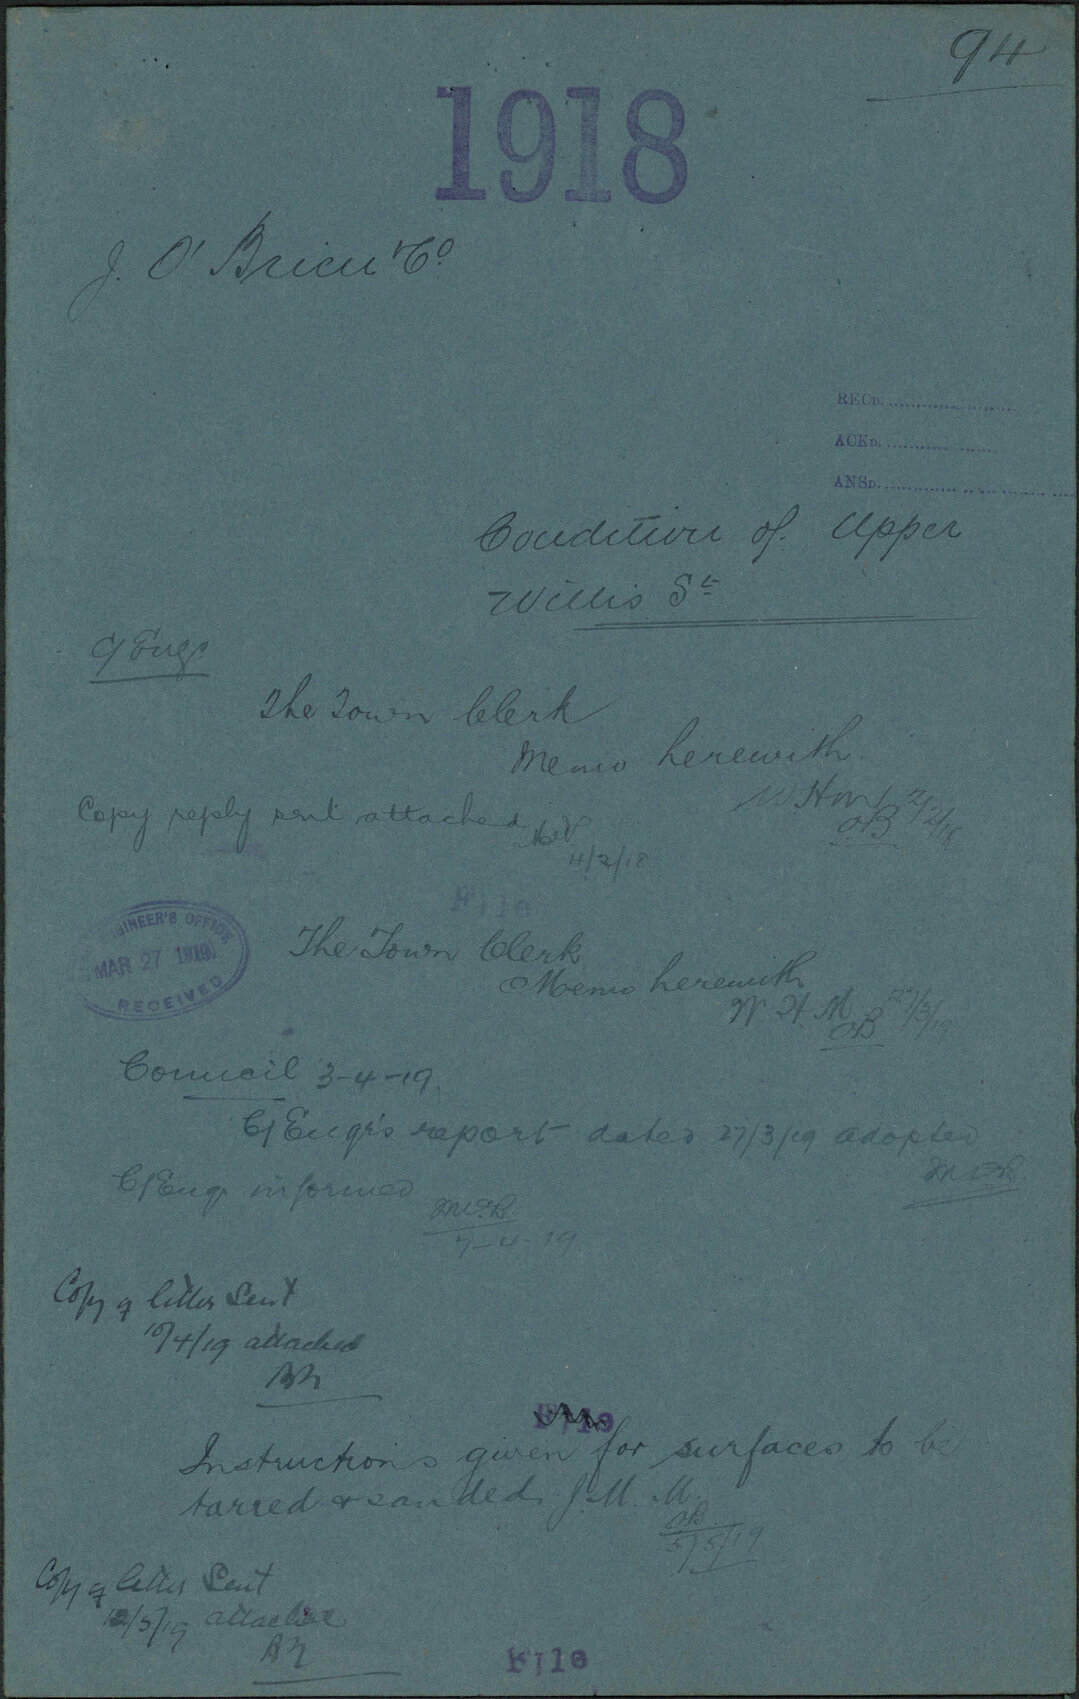 94
1918
J. O'Brien & Co
RECD.
ACKD.
ANSD.
Condition of Upper
Willis St
C/Engr
The Town Clerk
Memo herewith
2/2/18
OB
Copy reply sent attached
4/2/18
File
ENGINEER'S OFFICE
MAR 27 1919
RECEIVED
The Town Clerk
Memo herewith
W. H. M 27/3/19
OB
Council 3-4-19.
C/Engr's report dated 27/3/19 adopted
C/Engr informed
7-4-19
Copy of letter Sent
10/4/19 attached
File
Instructions given for surfaces to be
tarred & sanded. J. M. M.
OB
5/5/19
Copy of letter Sent
12/5/19 attached
File